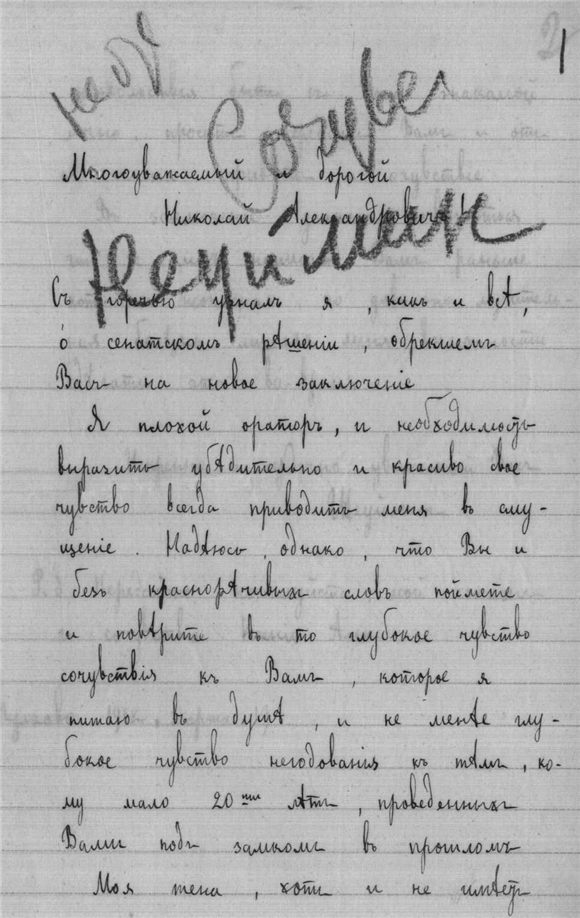 1
Многоуважаемый и дорогой
Николай Александровичъ!
Съ горечью узналъ я, какъ и всѣ,
о сенатскомъ рѣшеніи, обрекшемъ
Васъ на новое заключеніе
Я плохой ораторъ, и необходимость
выразить убѣдительно и красиво свое
чувство всегда приводитъ меня въ сму-
щеніе. Надѣюсь, однако, что Вы и
безъ краснорѣчивыхъ словъ поймете
и повѣрите въ то глубокое чувство
сочувствія къ Вамъ, которое я
питаю въ душѣ, и не менѣе глу-
бокое чувство негодованія къ тѣмъ, ко-
му мало 20 ти лѣтъ, проведенныхъ
Вами подъ замкомъ въ прошломъ
Моя жена, хотя и не имѣетъ